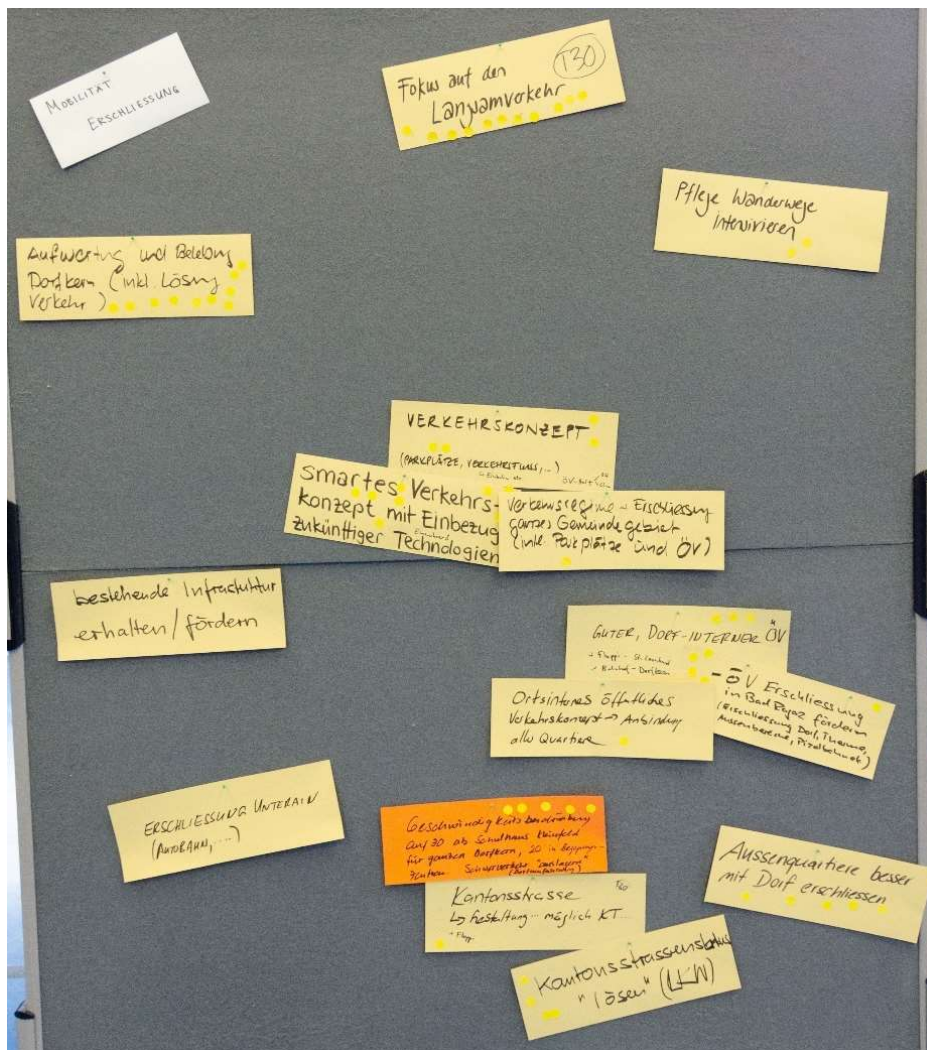 MOBILITÄT
ERSCHLIESSUNG
T30
Fokus auf den
Langsamverkehr
Pflege Wanderwege
intensivieren
Aufwertung und Belebung
Dorfkern (inkl. Lösung
Verkehr)
VERKEHRSKONZEPT
(PARKPLÄTZE, VERKEHRSFLUSS, ...)
smartes Verkehrs-
konzept mit Einbezug
zukünftiger Technologien
Verkehrsregime + Erschliessung
ganzes Gemeindegebiet
(inkl. Parkplätze und ÖV)
bestehende Infrastruktur
erhalten/fördern
GUTER, DORF-INTERNER ÖV
Bahnhof - Dorfkern
ÖV Erschliessung
in Bad Ragaz fördern
(Erschliessung Dorf, Therme,
Aussenbereiche, Pizolbahnen)
Ortsinternes öffentliches
Verkehrskonzept → Anbindung
aller Quartiere
ERSCHLIESSUNG UNTERAIN
(AUTOBAHN, ....)
Geschwindigkeitsbeschränkung
auf 30 ab Schulhaus
für ganzen Dorfkern, 20 in
Schwerverkehr "auslagern"
Kantonsstrasse
↳ Gestaltung... möglich KT...
Aussenquartiere besser
mit Dorf erschliessen
Kantonsstrassenstatus
"lösen" (LKW)